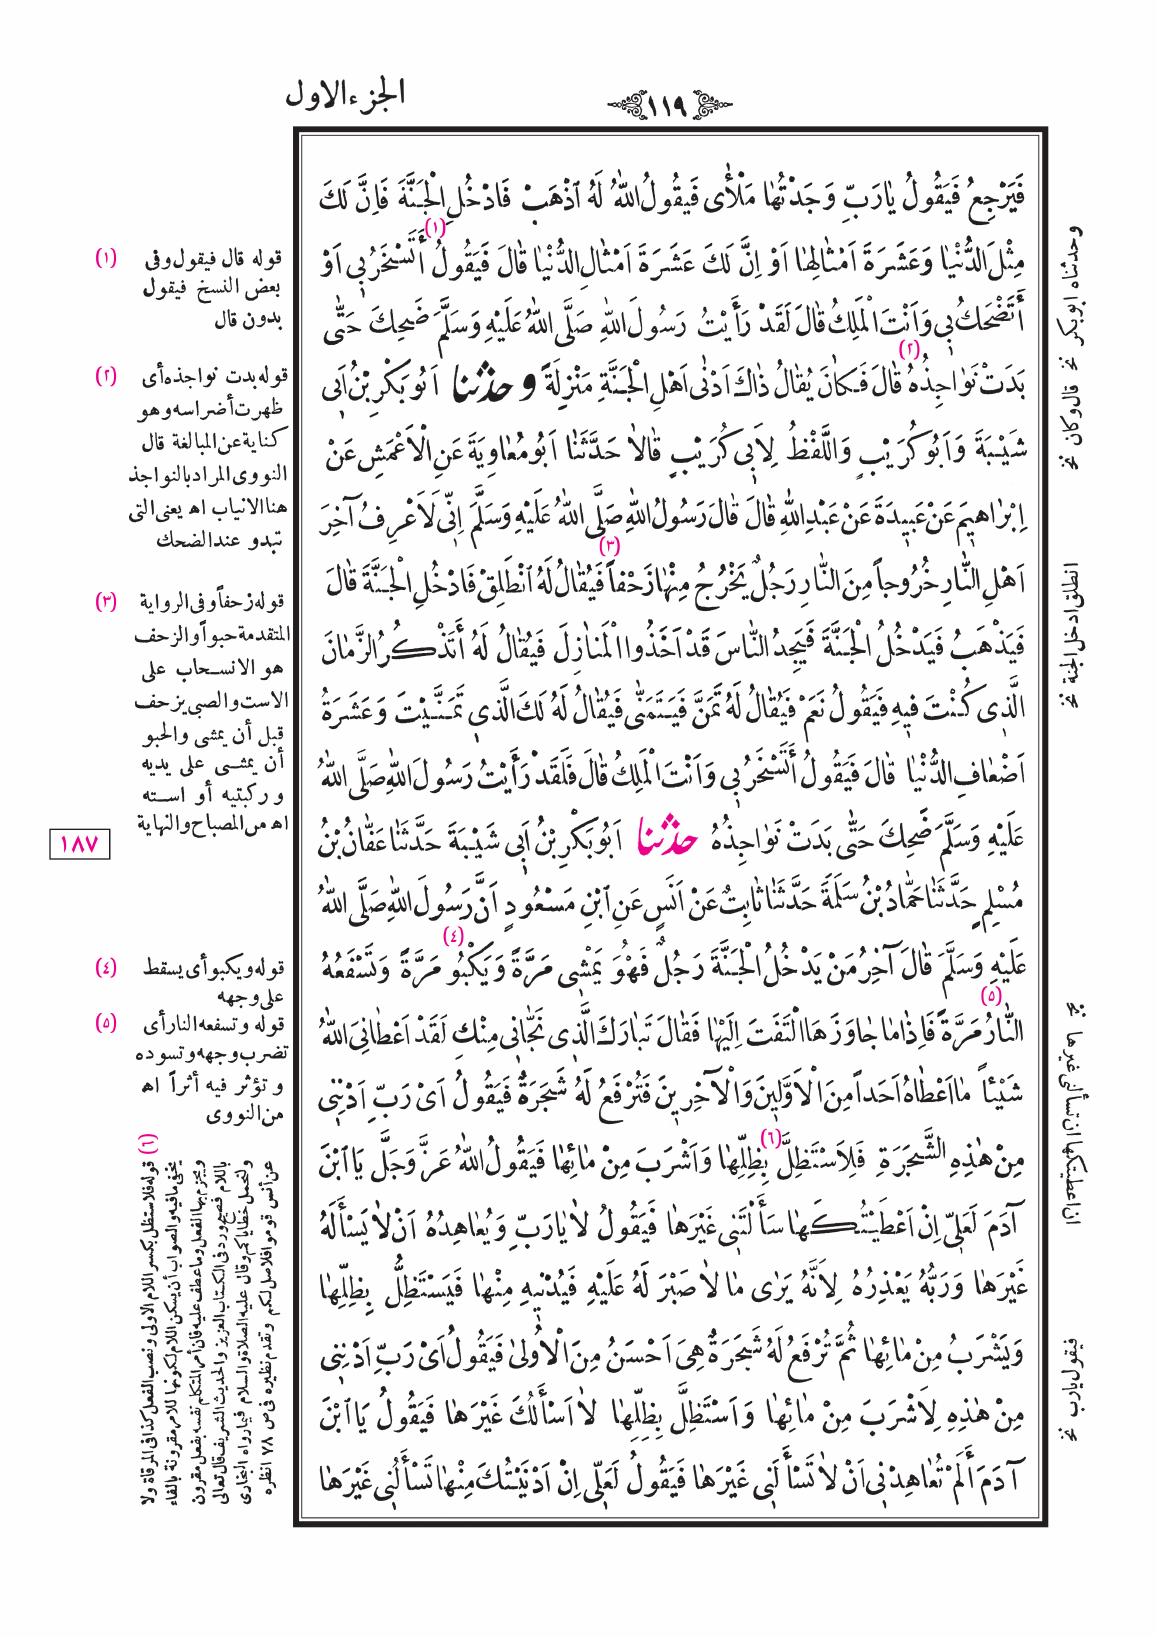 الجزء الاول
١١٩
فَيَرْجِعُ فَيَقُولُ يَارَبِّ وَجَدْتُهَا مَلْأَى فَيَقُولُ اللهُ لَهُ اذْهَبْ فَادْخُلِ الْجَنَّةَ فَاِنَّ لَكَ
مِثْلَ الدُّنْيَا وَعَشَرَةَ اَمْثَالِهَا اَوْ اِنَّ لَكَ عَشَرَةَ اَمْثَالِ الدُّنْيَا قَالَ فَيَقُولُ (١) أَتَسْخَرُ بِي اَوْ
أَتَضْحَكُ بِي وَاَنْتَ الْمَلِكُ قَالَ لَقَدْ رَأَيْتُ رَسُولَ اللهِ صَلَّى اللهُ عَلَيْهِ وَسَلَّمَ ضَحِكَ حَتَّى
بَدَتْ نَوَاجِذُهُ (٢) قَالَ فَكَانَ يُقَالُ ذَاكَ اَدْنَى اَهْلِ الْجَنَّةِ مَنْزِلَةً وحدثنا اَبُو بَكْرِ بْنُ اَبِي
شَيْبَةَ وَاَبُو كُرَيْبٍ وَاللَّفْظُ لِاَبِي كُرَيْبٍ قَالَا حَدَّثَنَا اَبُو مُعَاوِيَةَ عَنِ الْاَعْمَشِ عَنْ
اِبْرَاهِيمَ عَنْ عَبِيدَةَ عَنْ عَبْدِ اللهِ قَالَ قَالَ رَسُولُ اللهِ صَلَّى اللهُ عَلَيْهِ وَسَلَّمَ اِنِّي لَاَعْرِفُ آخِرَ
اَهْلِ النَّارِ خُرُوجاً مِنَ النَّارِ رَجُلٌ يَخْرُجُ مِنْهَا زَحْفاً (٣) فَيُقَالُ لَهُ انْطَلِقْ فَادْخُلِ الْجَنَّةَ قَالَ
فَيَذْهَبُ فَيَدْخُلُ الْجَنَّةَ فَيَجِدُ النَّاسَ قَدْ اَخَذُوا الْمَنَازِلَ فَيُقَالُ لَهُ أَتَذْكُرُ الزَّمَانَ
الَّذِي كُنْتَ فِيهِ فَيَقُولُ نَعَمْ فَيُقَالُ لَهُ تَمَنَّ فَيَتَمَنَّى فَيُقَالُ لَهُ لَكَ الَّذِي تَمَنَّيْتَ وَعَشَرَةُ
اَضْعَافِ الدُّنْيَا قَالَ فَيَقُولُ أَتَسْخَرُ بِي وَاَنْتَ الْمَلِكُ قَالَ فَلَقَدْ رَأَيْتُ رَسُولَ اللهِ صَلَّى اللهُ
عَلَيْهِ وَسَلَّمَ ضَحِكَ حَتَّى بَدَتْ نَوَاجِذُهُ حدثنا اَبُو بَكْرِ بْنُ اَبِي شَيْبَةَ حَدَّثَنَا عَفَّانُ بْنُ
مُسْلِمٍ حَدَّثَنَا حَمَّادُ بْنُ سَلَمَةَ حَدَّثَنَا ثَابِتٌ عَنْ اَنَسٍ عَنِ ابْنِ مَسْعُودٍ اَنَّ رَسُولَ اللهِ صَلَّى اللهُ
عَلَيْهِ وَسَلَّمَ قَالَ آخِرُ مَنْ يَدْخُلُ الْجَنَّةَ رَجُلٌ فَهْوَ يَمْشِي مَرَّةً وَيَكْبُو (٤) مَرَّةً وَتَسْفَعُهُ
النَّارُ (٥) مَرَّةً فَاِذَا مَا جَاوَزَهَا الْتَفَتَ اِلَيْهَا فَقَالَ تَبَارَكَ الَّذِي نَجَّانِي مِنْكِ لَقَدْ اَعْطَانِيَ اللهُ
شَيْئاً مَا اَعْطَاهُ اَحَداً مِنَ الْاَوَّلِينَ وَالْآخِرِينَ فَتُرْفَعُ لَهُ شَجَرَةٌ فَيَقُولُ اَيْ رَبِّ اَدْنِنِي
مِنْ هٰذِهِ الشَّجَرَةِ فَلِاَسْتَظِلَّ (٦) بِظِلِّهَا وَاَشْرَبَ مِنْ مَائِهَا فَيَقُولُ اللهُ عَزَّ وَجَلَّ يَا ابْنَ
آدَمَ لَعَلِّي اِنْ اَعْطَيْتُكَهَا سَأَلْتَنِي غَيْرَهَا فَيَقُولُ لَا يَارَبِّ وَيُعَاهِدُهُ اَنْ لَا يَسْأَلَهُ
غَيْرَهَا وَرَبُّهُ يَعْذِرُهُ لِاَنَّهُ يَرَى مَا لَا صَبْرَ لَهُ عَلَيْهِ فَيُدْنِيهِ مِنْهَا فَيَسْتَظِلُّ بِظِلِّهَا
وَيَشْرَبُ مِنْ مَائِهَا ثُمَّ تُرْفَعُ لَهُ شَجَرَةٌ هِيَ اَحْسَنُ مِنَ الْاُولَى فَيَقُولُ اَيْ رَبِّ اَدْنِنِي
مِنْ هٰذِهِ لِاَشْرَبَ مِنْ مَائِهَا وَاَسْتَظِلَّ بِظِلِّهَا لَا اَسْأَلُكَ غَيْرَهَا فَيَقُولُ يَا ابْنَ
آدَمَ أَلَمْ تُعَاهِدْنِي اَنْ لَا تَسْأَلَنِي غَيْرَهَا فَيَقُولُ لَعَلِّي اِنْ اَدْنَيْتُكَ مِنْهَا تَسْأَلُنِي غَيْرَهَا
وحدثناه ابوبكر نخ
قال وكان نخ
انطلق ادخل الجنة نخ
ان اعطيتكها ان تسألني غيرها نخ
فيقول يارب نخ
(١) قوله قال فيقول وفى
بعض النسخ فيقول
بدون قال
(٢) قوله بدت نواجذه أى
ظهرت أضراسه وهو
كناية عن المبالغة قال
النووى المراد بالنواجذ
هنا الانياب اه يعنى التى
تبدو عند الضحك
(٣) قوله زحفاً وفى الرواية
المتقدمة حبواً والزحف
هو الانسحاب على
الاست والصبي يزحف
قبل أن يمشى والحبو
أن يمشى على يديه
و ركبتيه أو استه
اه من المصباح والنهاية
١٨٧
(٤) قوله ويكبو أى يسقط
على وجهه
(٥) قوله وتسفعه النار أى
تضرب وجهه وتسوده
و تؤثر فيه أثراً اه
من النووى
(٦) قوله فلاستظل بكسر اللام الاولى ونصب الفعل كذا فى المرقاة ولا
يخفى ما فيه والصواب أن يسكن اللام لكونها للامر مقرونة بالفاء
ويجزم بها الفعل وما عطف عليه فان أمر المتكلم نفسه بفعل مقرون
باللام فصيح ورد فى الكتاب العزيز والحديث الشريف قال تعالى
ولنحمل خطاياكم وقال عليه الصلاة والسلام فيما رواه البخارى
عن أنس قوموا فلاصل لكم وتقدم نظيره فى ص ٧٨ انظره